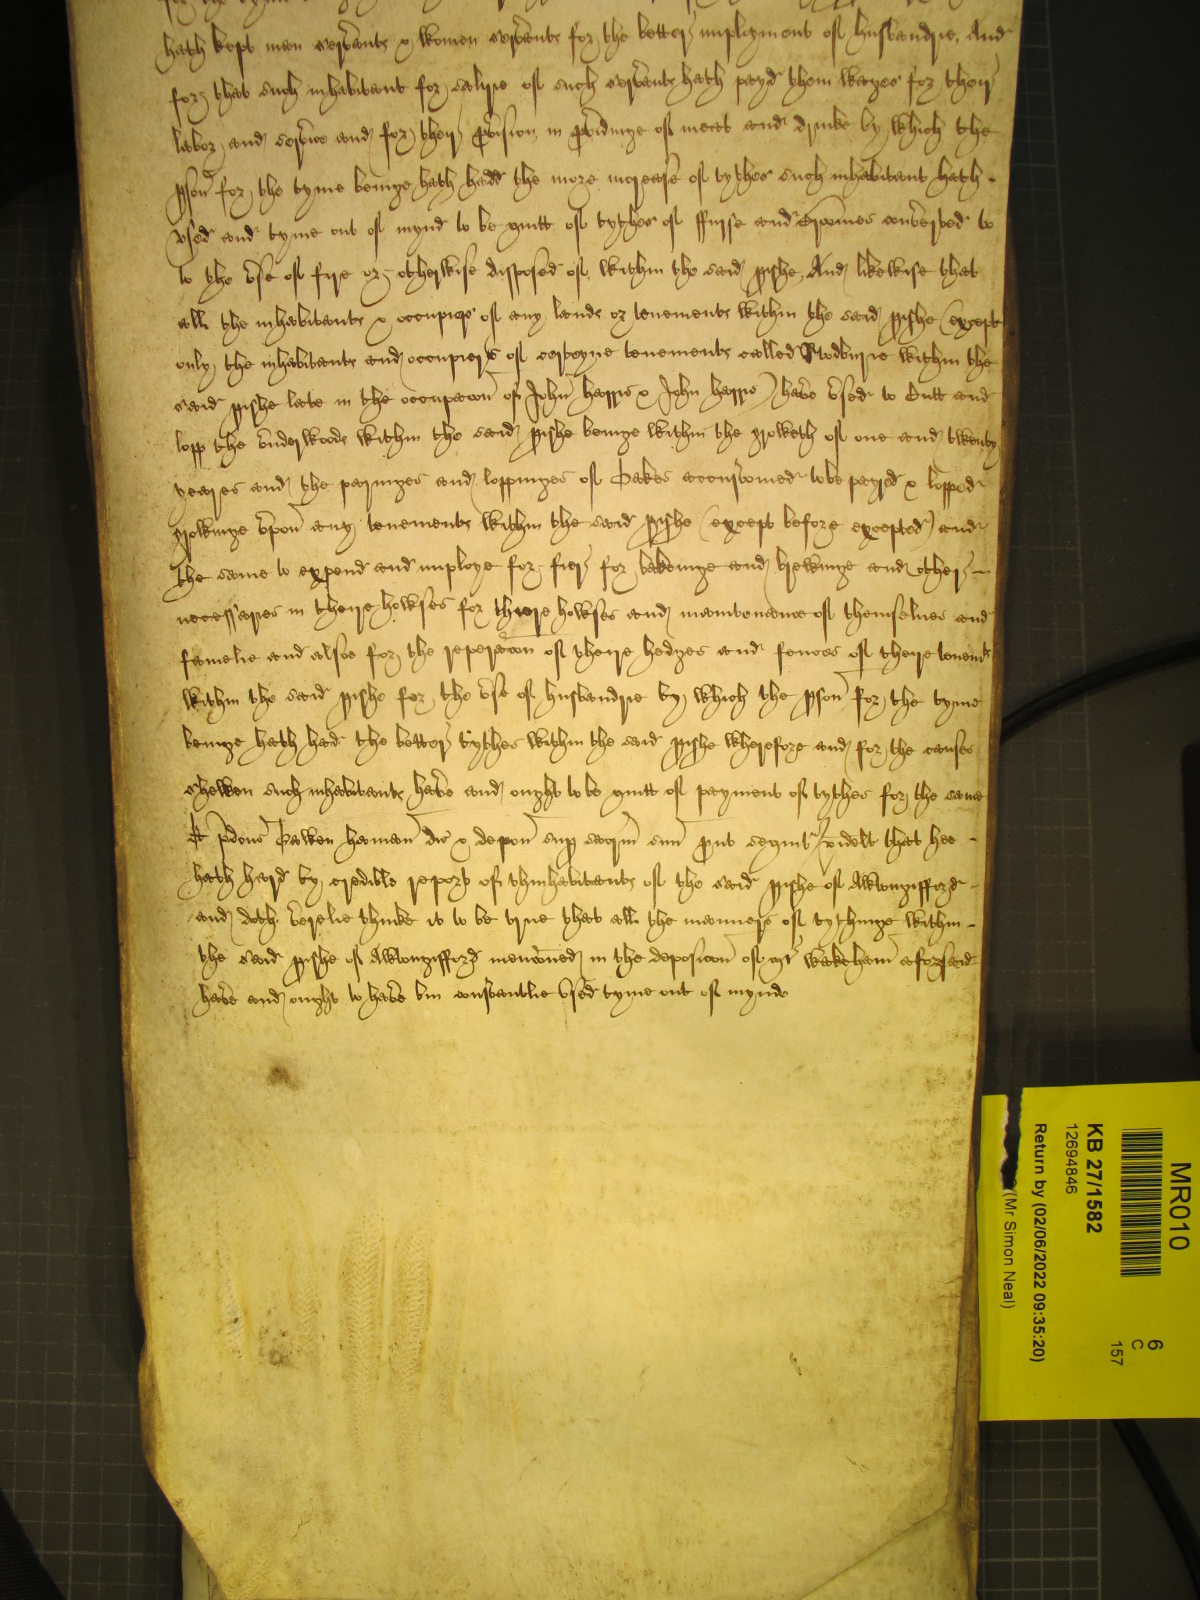 hath kept men servants & women servants for the better imployment of husbandrie, And
for that such inhabitant for salyre of such servants hath payd them wages for their
labor and service and for their pvision in pvidinge of meat and drinke by which the
pson for the tyme beinge hath hadd the more increase of tythes such inhabitant hath
vsed and tyme out of mynd to be quitt of tythes of ffurse and Broomes converted to
to the vse of fire or otherwise disposed of within the said pishe, And likewise that
all the inhabitants & occupiers of any lands or tenements within the said pishe (except
only the inhabitants and occupiers of certeyne tenements called within the
said pishe late in the occupacon of John harris & John harris) have vsed to Cutt and
lopp the vnderwoods within the said pishe beinge within the groweth of one and twenty
yeares and the paringes and loppinges of Oakes accustomed to be payrd & lopped
growinge vpon any tenements within the said pishe (except before excepted) and
the same to expend and imploye for fier for bakeinge and brewinge and other
necessaries in there howses for there howses and maintenance of themselves and
famelie and alsoe for the reperacon of there hedges and fences of there tenemts
within the said pishe for the vse of husbandrie by which the pson for the tyme
beinge hath had the better tythes within the said pishe wherefore and for the causes
shewen such inhabitants have and ought to be quitt of payment of tythes for the same
Et pdcus haman dic & depon sup sacrm suu put sequitr videlt that hee
hath heard by credible report of thinhabitants of the said pishe of Alwingifford
and doth verelie thinke it to be true that all the manners of tythinge within
the said pishe of Alwingifford menconed in the deposicon of mr Wakeham aforesaid
have and ought to have bin constantlie vsed tyme out of mynde
MR010
KB 27/1582
12694846
Return by (02/06/2022 09:35:20)
(Mr Simon Neal)
6
C
157